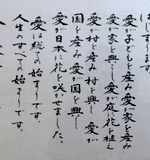 愛が子どもを産み愛が家を産み
愛が家を興し愛が花を植え
愛が村を産み村を興し 愛が
国を産み愛が国を興し
愛が日本に花を咲かせました。
愛は総ての始まりです。
人生のすべての始まりです。